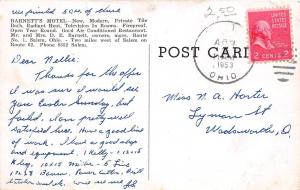 we printed 500 of these
BARNETT'S MOTEL—New, Modern, Private Tile
Bath, Radiant Heat, Television In Rooms. Fireproof.
Open Year Round. Good Air Conditioned Restaurant.
Mr. and Mrs. D. E. Barnett, owners, mgrs. Route
No. 1, Salem, Ohio - Two miles west of Salem on
Route 62. Phone 8252 Salem.
2.50
POST CARD
1953
OHIO
2 CENTS 2
Dear Nellie:
Thanks for the offer
it was sure I would see
you Easter Sunday, but
failed. Am pretty well
satisfied here. Have a good line
of work. I have a good shop
and equipment. 1 Kelly - 12x15
Kluge, 10x15 Miller - 5 Lino
Power cutter, Drill
Miss N. A. Horter
Lyman St
Wadsworth, O.